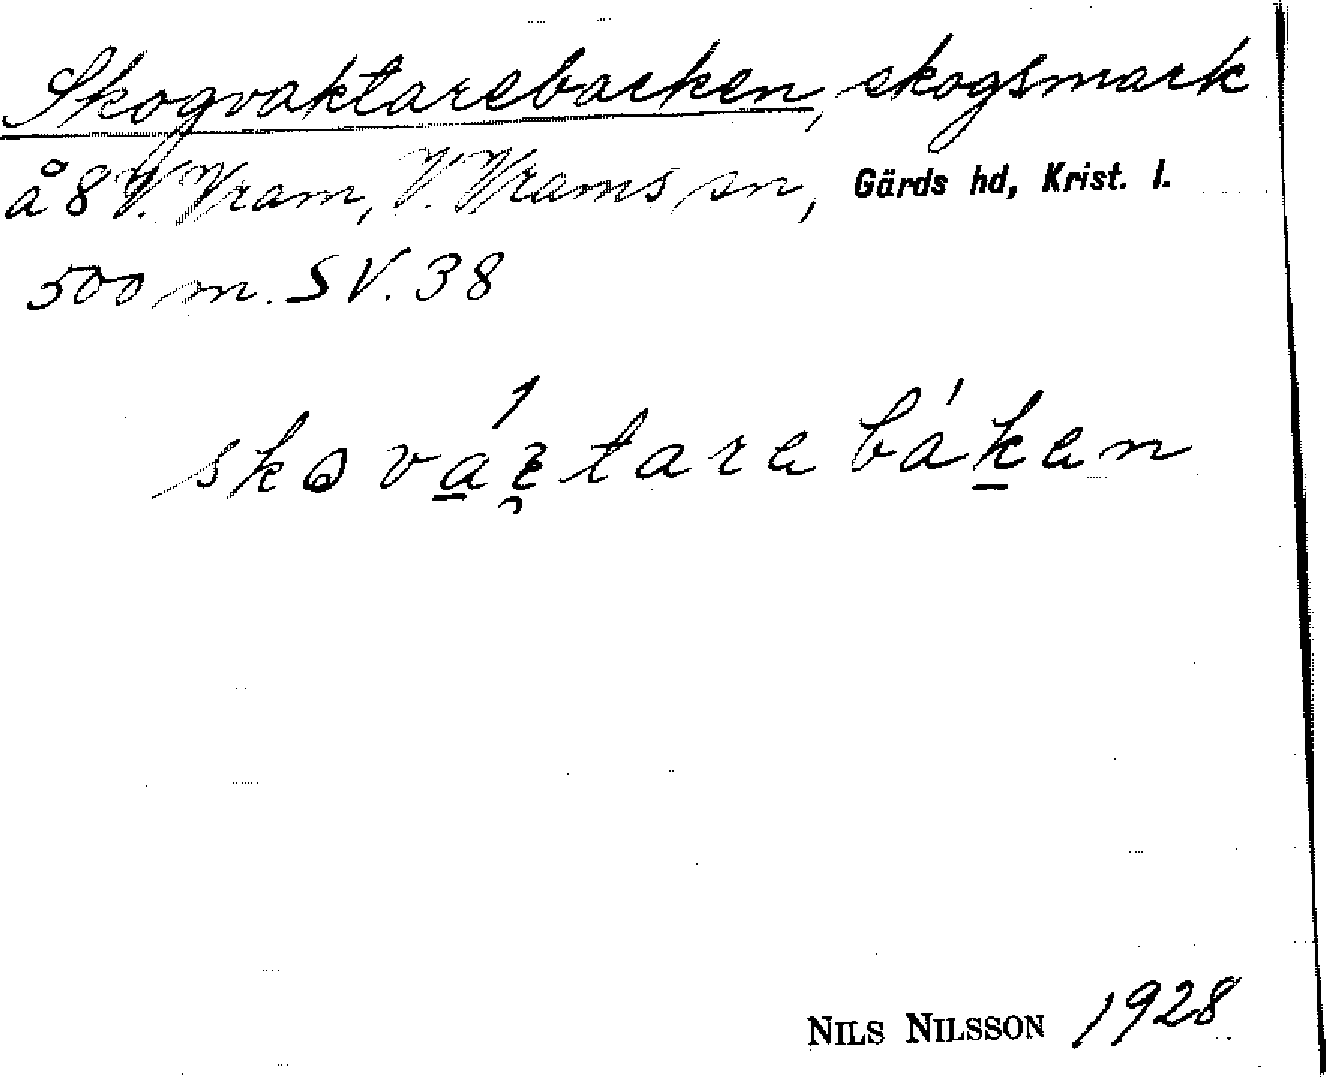 Skogvaktarebacken, skogsmark
å 8 V. Vram, V. Vrams sn, Gärds hd, Krist. l.
500 m. SV. 38
NILS NILSSON 1928